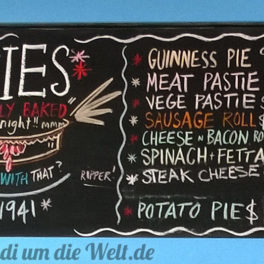 IES
LY BAKED
night!! mmm
WITH THAT?
RIPPER!
1941
GUINNESS PIE $
MEAT PASTIE
VEGE PASTIES
SAUSAGE ROLL$
CHEESE n BACON RO
SPINACH + FETTA
STEAK CHEESE
POTATO PIE$
di um die Welt.de